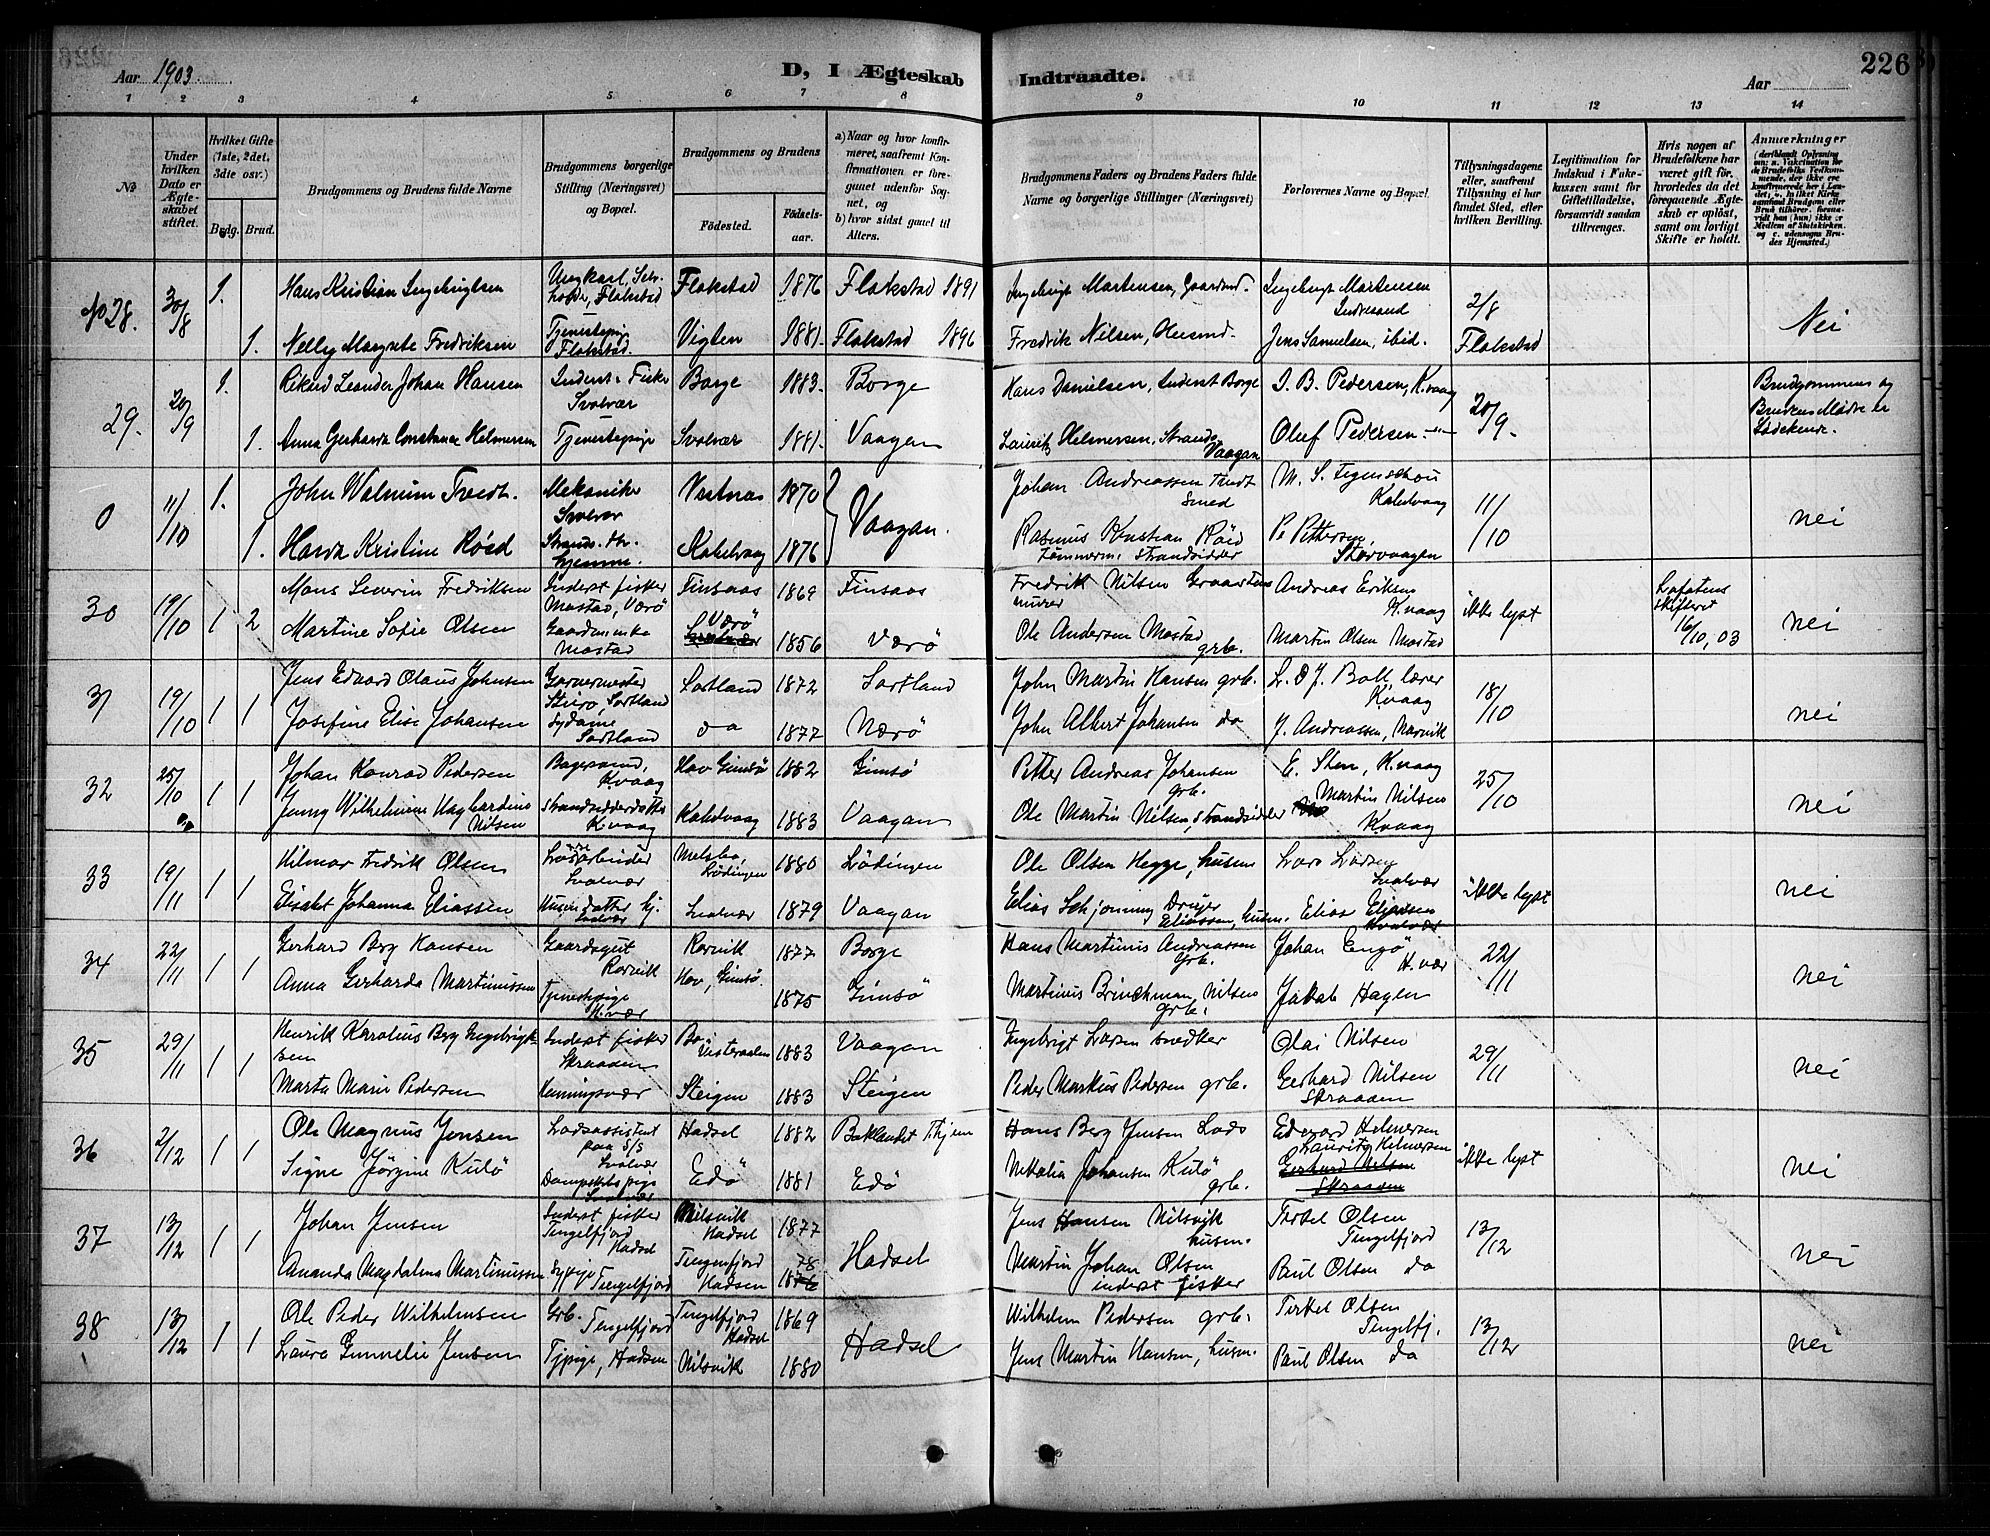 226
Aar 1903.
D, I Ægteskab Indtraadte.
Aar
1 2 3 4 5 6 7 8 9 10 11 12 13 14
No
Under hvilken Dato er Ægteskabet stiftet.
Hvilket Gifte (1ste, 2det, 3die osv.)
Brdg. Brud.
Brudgommens og Brudens fulde Navne
Brudgommens borgerlige Stilling (Næringsvei) og Bopæl.
Brudgommens og Brudens
Fødested.
Fødselsaar.
a) Naar og hvor konfirmeret, saafremt Konfirmationen er foregaaet udenfor Sognet, og
b) hvor sidst gaaet til Alters.
Brudgommens Faders og Brudens Faders fulde Navne og borgerlige Stillinger (Næringsvei)
Forlovernes Navne og Bopæl.
Tillysningsdagene eller, saafremt Tillysning ei har fundet Sted, efter hvilken Bevilling.
Legitimation for Indskud i Enkekassen samt for Giftetilladelse, forsaavidt saadan tiltrænges.
Hvis nogen af Brudefolkene har været gift før, hvorledes da det foregaaende Ægteskab er opløst, samt om lovligt Skifte er holdt.
Anmærkninger
28. 30/8 1. Hans Kristian Ingebrigtsen Ungkarl, Flakstad Flakstad 1876 Flakstad 1891 Ingebrigt Martensen, Gaardmd. Ingebrigt Martensen 2/8
1. Nelly Margrete Fredriksen Tjenestepige Flakstad. Vigten 1881. Flakstad 1896 Fredrik Nilsen, Husmd. Jens Samuelsen, ibid. Flakstad Nei
29. 20/9 1. Rikard Leander Johan Hansen Inderst, Fisker Svolvær Borge 1883. Borge Hans Danielsen, Inderst Borge I. B. Pedersen, K.vaag 20/9 Brudgommens og Brudens Mødre er Sødskende.
1. Anna Gerharda Constance Helmersen Tjenestepige Svolvær 1881. Vaagan Lauritz Helmersen, Strands. Vaagan Oluf Pedersen
0 11/10 1. John Walnum Tredt. Mekaniker Svolvær Vestnæs 1870 Vaagan. Johan Andreassen Tredt Smed M. S. Kabelvaag 11/10 nei
1. Hanna Kristine Röed Kabelvaag 1876 Rasmus Kristian Röed Tömmerm. Strandsidder P. Pettersen, Storvaagen
30 19/10 1 2 Mons Severin Fredriksen Inderst fisker Mostad, Værö Finsaas 1869 Finsaas Fredrik Nilsen murer Andreas Eriksen K.vaag ikke lyst 16/10, 03 nei
Martine Sofie Olsen Mostad Værö 1856 Værö Ole Andersen Mostad grb. Martin Olsen Mostad
31 19/10 1 1 Jens Edvard Olaus Johnsen Garvermester Sortland Sortland 1872 Sortland John Martin Hansen grb. L. D. J. Ball, lærer K.vaag 18/10 nei
Josefine Elise Johansen Sydame Sortland do 1877 Værö John Albert Johansen do J. Andreassen, Narvik
32 25/10 1 1 Johan Konrad Pedersen Bagersvend, K.vaag Hov Gimsö 1882 Gimsö Petter Andreas Johansen grb. E. Sten, K.vaag 25/10 nei
Jenny Wilhelmine Hagbardine Nilsen Strandsidderdatter K.vaag Kabelvaag 1883 Vaagan Ole Martin Nilsen, strandsidder Martin Nilsen K.vaag
33 19/11 1 1 Hilmar Fredrik Olsen Svolvær Lödingen 1880 Lödingen Ole Olsen Hegge, husm. Lars Larsen Svolvær ikke lyst nei
Elisabet Johanna Eliassen Husm. datter Svolvær Svolvær 1879 Vaagan Elias Schjønning Eliassen, husm. Elias Eliassen Svolvær
34 22/11 1 1 Gerhard Berg Hansen Gaardsgut Rørvik Rørvik 1877 Borge Hans Martinus Andreassen Grb. Johan Engö H.vær 22/11 nei
Anna Gerharda Martinussen Tjenestepige H.vær Hov, Gimsö. 1875 Gimsö Martinus Brinchman Nilsen grb. Jakob Hagen
35 29/11 1 1 Henrik Karolius Berg Ingebrigtsen Inderst fisker Skraaden Bö Vesteraalen 1883 Vaagan Ingebrigt Larsen snedker Olai Nilsen 29/11 nei
Marta Marie Pedersen Henningsvær Steigen 1883 Steigen Peder Markus Pedersen grb. Gerhard Nilsen Skraaden
36 2/12 1 1 Ole Magnus Jensen Losassistent paa S/S Svolvær Hadsel 1882 Baklandet Thjem Hans Berg Jensen Lods Edvard Helmersen ikke lyst nei
Signe Jörgine Kulö Dampskibspige Svolvær Edö 1881 Edö Johansen Kulö grb. Lauritz Helmersen Gerhard Nilsen Skraaden
37 13/12 1 1 Johan Jensen Inderst fisker Tengelfjord Hadsel Nilsvik Hadsel 1877 Hadsel Jens Hansen Nilsvik husm. Terkel Olsen Tengelfjord 13/12 nei
Ananda Magdalena Martinussen Sypige Tengelfjord Tengelfjord Hadsel 78 1876 Martin Johan Olsen inderst fisker Paul Olsen do
38 13/12 1 1 Ole Peder Wilhelmsen Grb. Tengelfjord Tengelfjord Hadsel 1869 Hadsel Wilhelm Pedersen grb. Terkel Olsen Tengelfj. 13/12 nei
Laura Gunnelie Jensen Tjpige, Hadsel Nilsvik 1880 Jens Martin Hansen, husm. Paul Olsen do